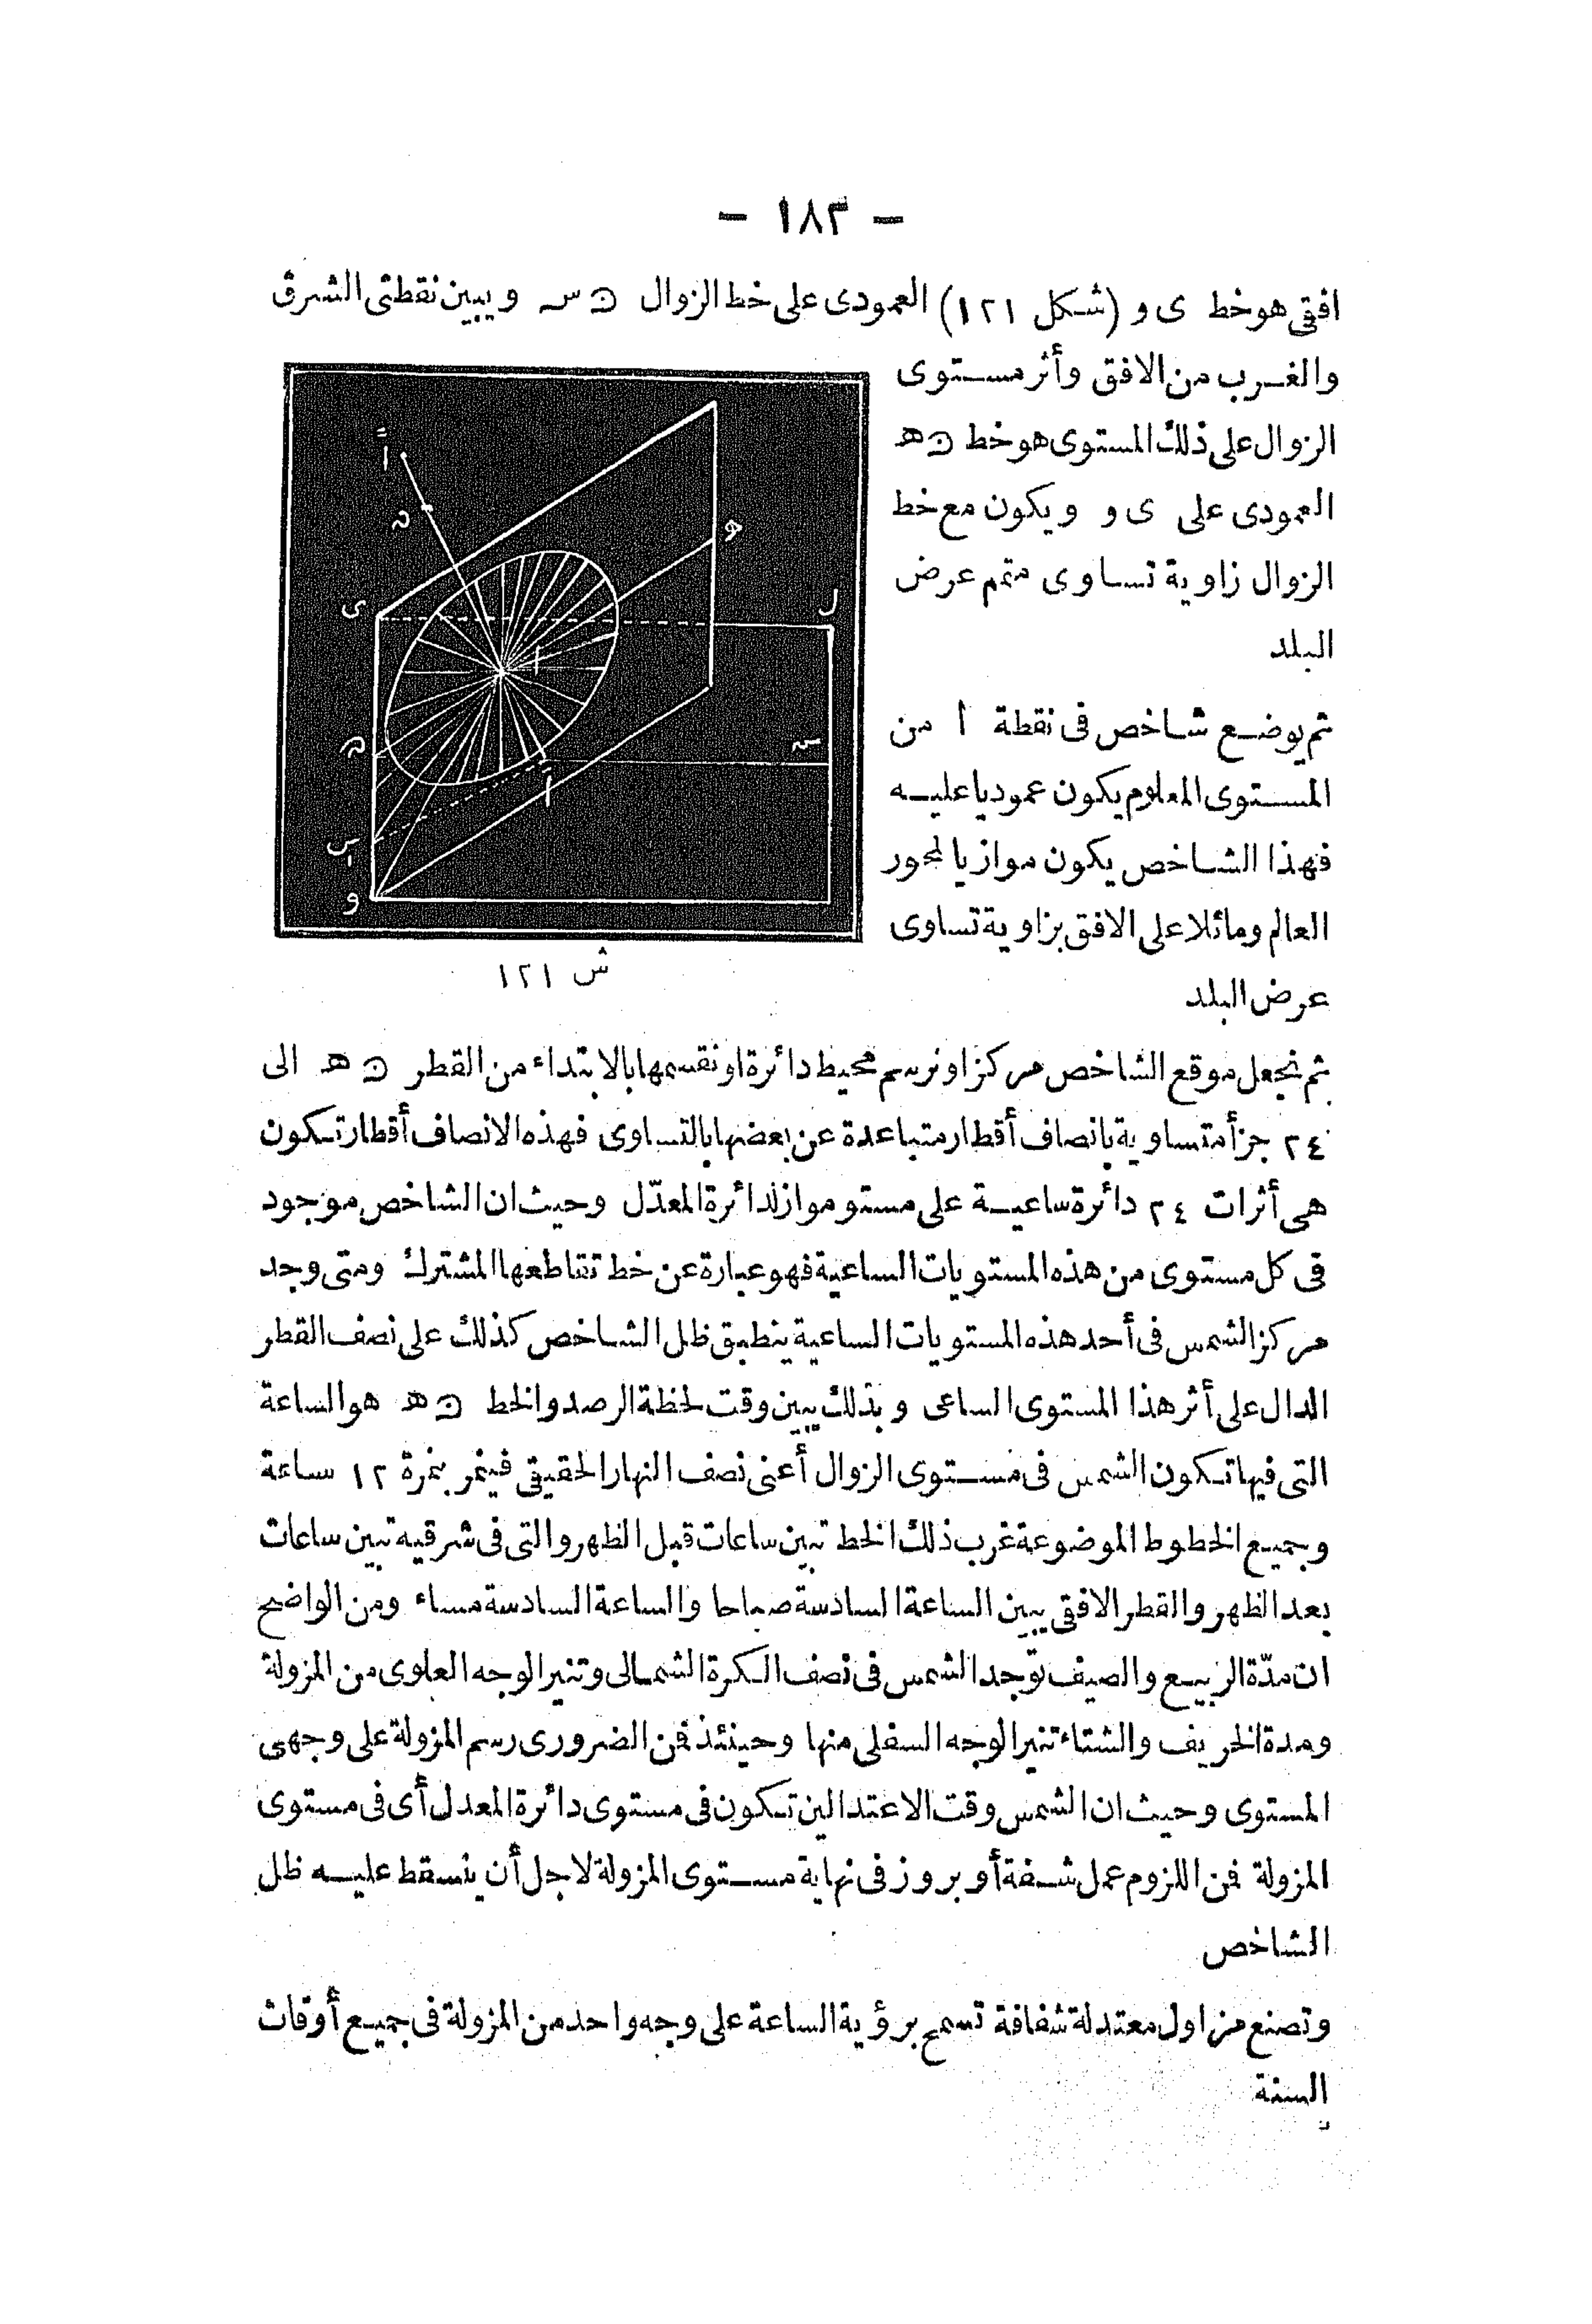 - ١٨٣ -
افقى هو خط ى و (شكل ١٢١) العمودى على خط الزوال ن س ويبين نقطتى الشرق
والغرب من الافق وأثر مستوى
الزوال على ذلك المستوى هو خط ن ه
العمودى على ى و ويكون مع خط
الزوال زاوية تساوى متمم عرض
البلد
ثم يوضع شاخص فى نقطة ا من
المستوى المعلوم يكون عموديا عليه
فهذا الشاخص يكون موازيا لمحور
العالم ومائلا على الافق بزاوية تساوى
عرض البلد
ى
ه
ل
و
ا
ش ١٢١
ثم نجعل موقع الشاخص مركزا ونرسم محيط دائرة ونقسمها بالابتداء من القطر ن ه الى
٢٤ جزأ متساوية بانصاف أقطار متباعدة عن بعضها بالتساوى فهذه الانصاف أقطار تكون
هى أثرات ٢٤ دائرة ساعية على مستو مواز لدائرة المعدّل وحيث ان الشاخص موجود
فى كل مستوى من هذه المستويات الساعية فهو عبارة عن خط تقاطعها المشترك ومتى وجد
مركز الشمس فى أحد هذه المستويات الساعية ينطبق ظل الشاخص كذلك على نصف القطر
الدال على أثر هذا المستوى الساعى وبذلك يبين وقت لحظة الرصد والخط ن ه هو الساعة
التى فيها تكون الشمس فى مستوى الزوال أعنى نصف النهار الحقيقى فينمر بنمرة ١٢ ساعة
وجميع الخطوط الموضوعة غرب ذلك الخط تبين ساعات قبل الظهر والتى فى شرقيه تبين ساعات
بعد الظهر والقطر الافقى يبين الساعة السادسة صباحا والساعة السادسة مساء ومن الواضح
ان مدّة الربيع والصيف توجد الشمس فى نصف الكرة الشمالى وتنير الوجه العلوى من المزولة
ومدة الخريف والشتاء تنير الوجه السفلى منها وحينئذ فن الضرورى رسم المزولة على وجهى
المستوى وحيث ان الشمس وقت الاعتدالين تكون فى مستوى دائرة المعدل أى فى مستوى
المزولة فن اللزوم عمل شفة أو بروز فى نهاية مستوى المزولة لاجل أن ينسقط عليه ظل
الشاخص
وتصنع مزاول معتدلة شفافة تسمح برؤية الساعة على وجه واحد من المزولة فى جميع أوقات
السنة